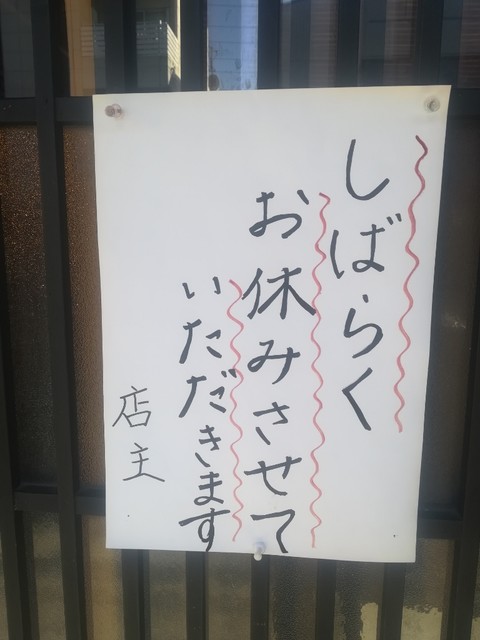 しばらく
お休みさせて
いただきます
店主